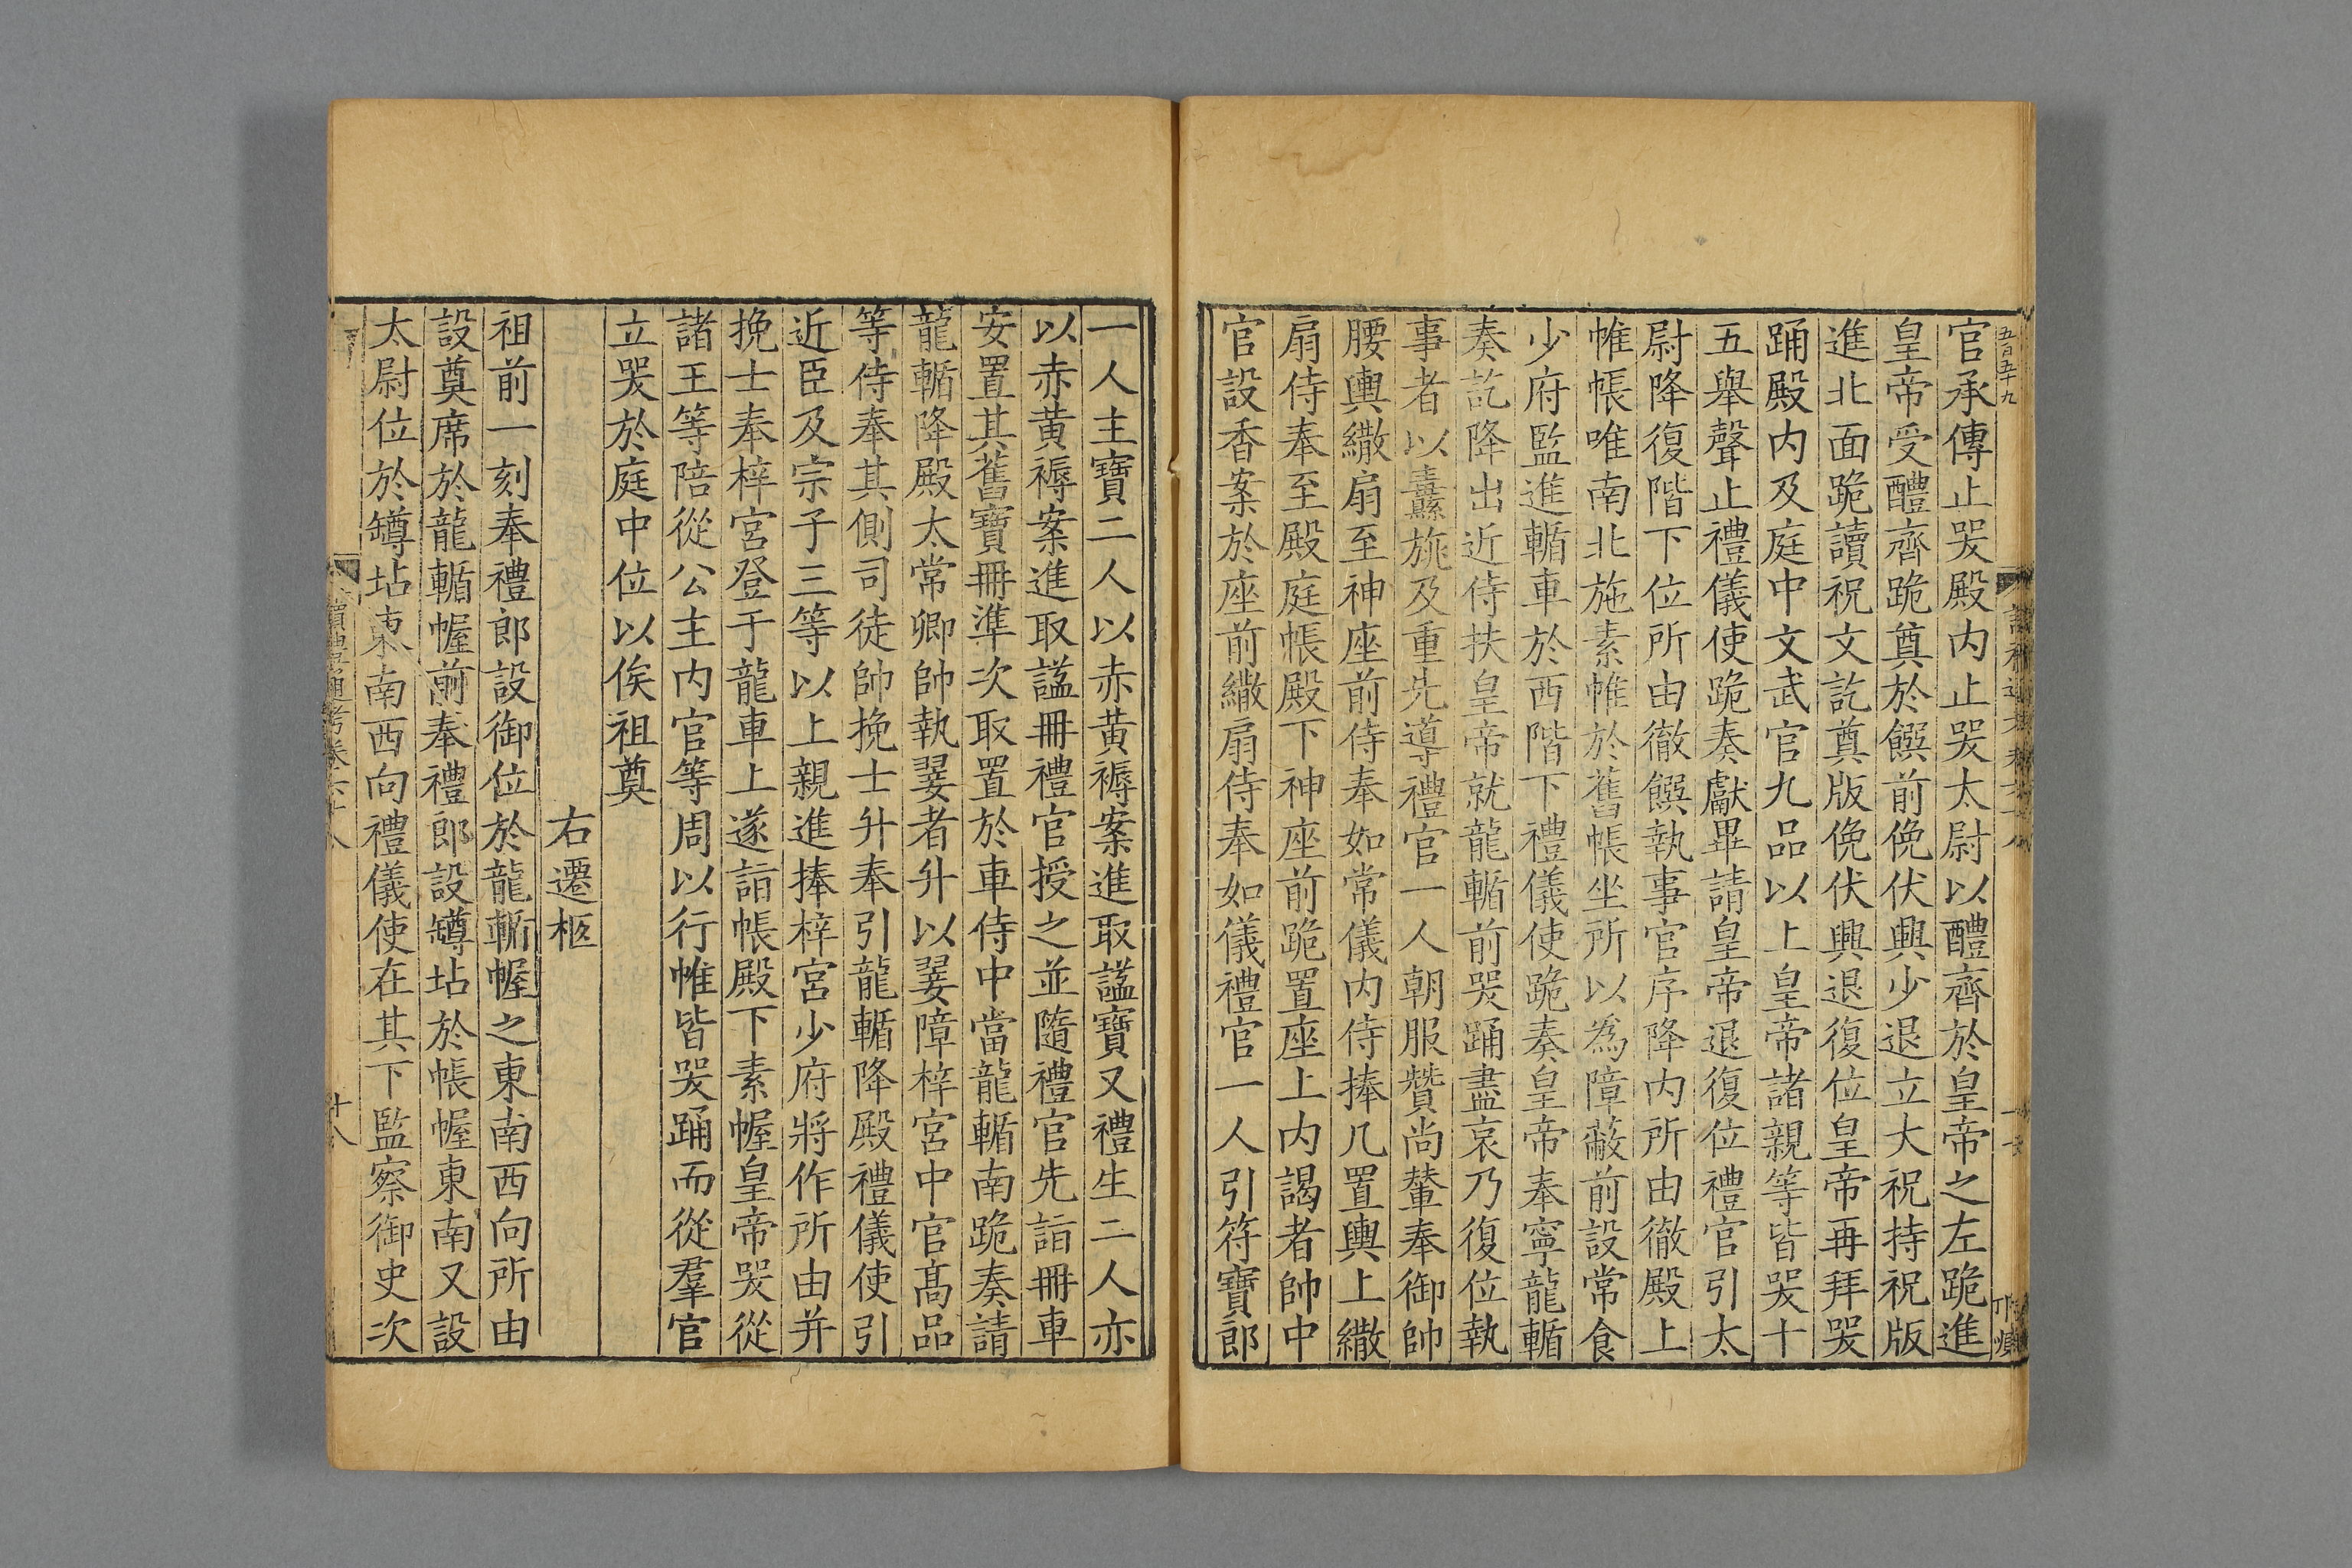 五百五十九
官承傳止哭殿内止哭太尉以醴齊於皇帝之左跪進
皇帝受醴齊跪奠於饌前俛伏興少退立大祝持祝版
進北面跪讀祝文訖奠版俛伏興退復位皇帝再拜哭
踊殿内及庭中文武官九品以上皇帝諸親等皆哭十
五舉聲止禮儀使跪奏獻畢請皇帝退復位禮官引太
尉降復階下位所由徹饌執事官序降内所由徹殿上
帷帳唯南北施素帷於舊帳坐所以為障蔽前設常食
少府監進輴車於西階下禮儀使跪奏皇帝奉寧龍輴
奏訖降出近侍扶皇帝就龍輴前哭踊盡哀乃復位執
事者以纛旐及重先導禮官一人朝服贊尚輦奉御帥
腰輿繖扇至神座前侍奉如常儀内侍捧几置輿上繖
扇侍奉至殿庭帳殿下神座前跪置座上内謁者帥中
官設香案於座前繖扇侍奉如儀禮官一人引符寶郎
一人主寶二人以赤黄褥案進取謚寶又禮生二人亦
以赤黄褥案進取謚冊禮官授之並隨禮官先詣冊車
安置其舊寶冊準次取置於車侍中當龍輴南跪奏請
龍輴降殿太常卿帥執翣者升以翣障梓宮中官髙品
等侍奉其側司徒帥挽士升奉引龍輴降殿禮儀使引
近臣及宗子三等以上親進捧梓宮少府將作所由并
挽士奉梓宮登于龍車上遂詣帳殿下素幄皇帝哭從
諸王等陪從公主内官等周以行帷皆哭踊而從羣官
立哭於庭中位以俟祖奠
右遷柩
祖前一刻奉禮郎設御位於龍輴幄之東南西向所由
設奠席於龍輴幄前奉禮郎設罇坫於帳幄東南又設
太尉位於罇坫東南西向禮儀使在其下監察御史次
十八